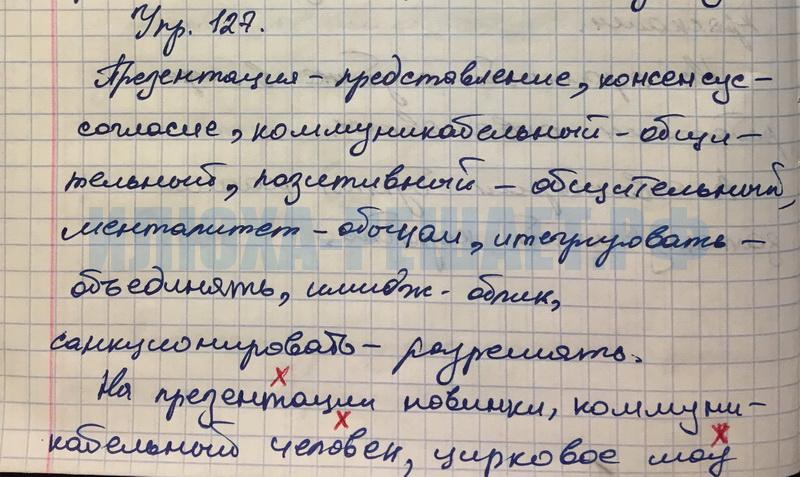 Упр. 127.
Презентация – представление, консенсус –
согласие, коммуникабельный – общи-
тельный, позитивный – общительный,
менталитет – обычаи, интегрировать –
объединять, имидж - облик,
санкционировать – разрешать.
На презентации новинки, коммуни-
кабельный человек, цирковое шоу
ИЛЮХА-РЕШАЕТ.РФ